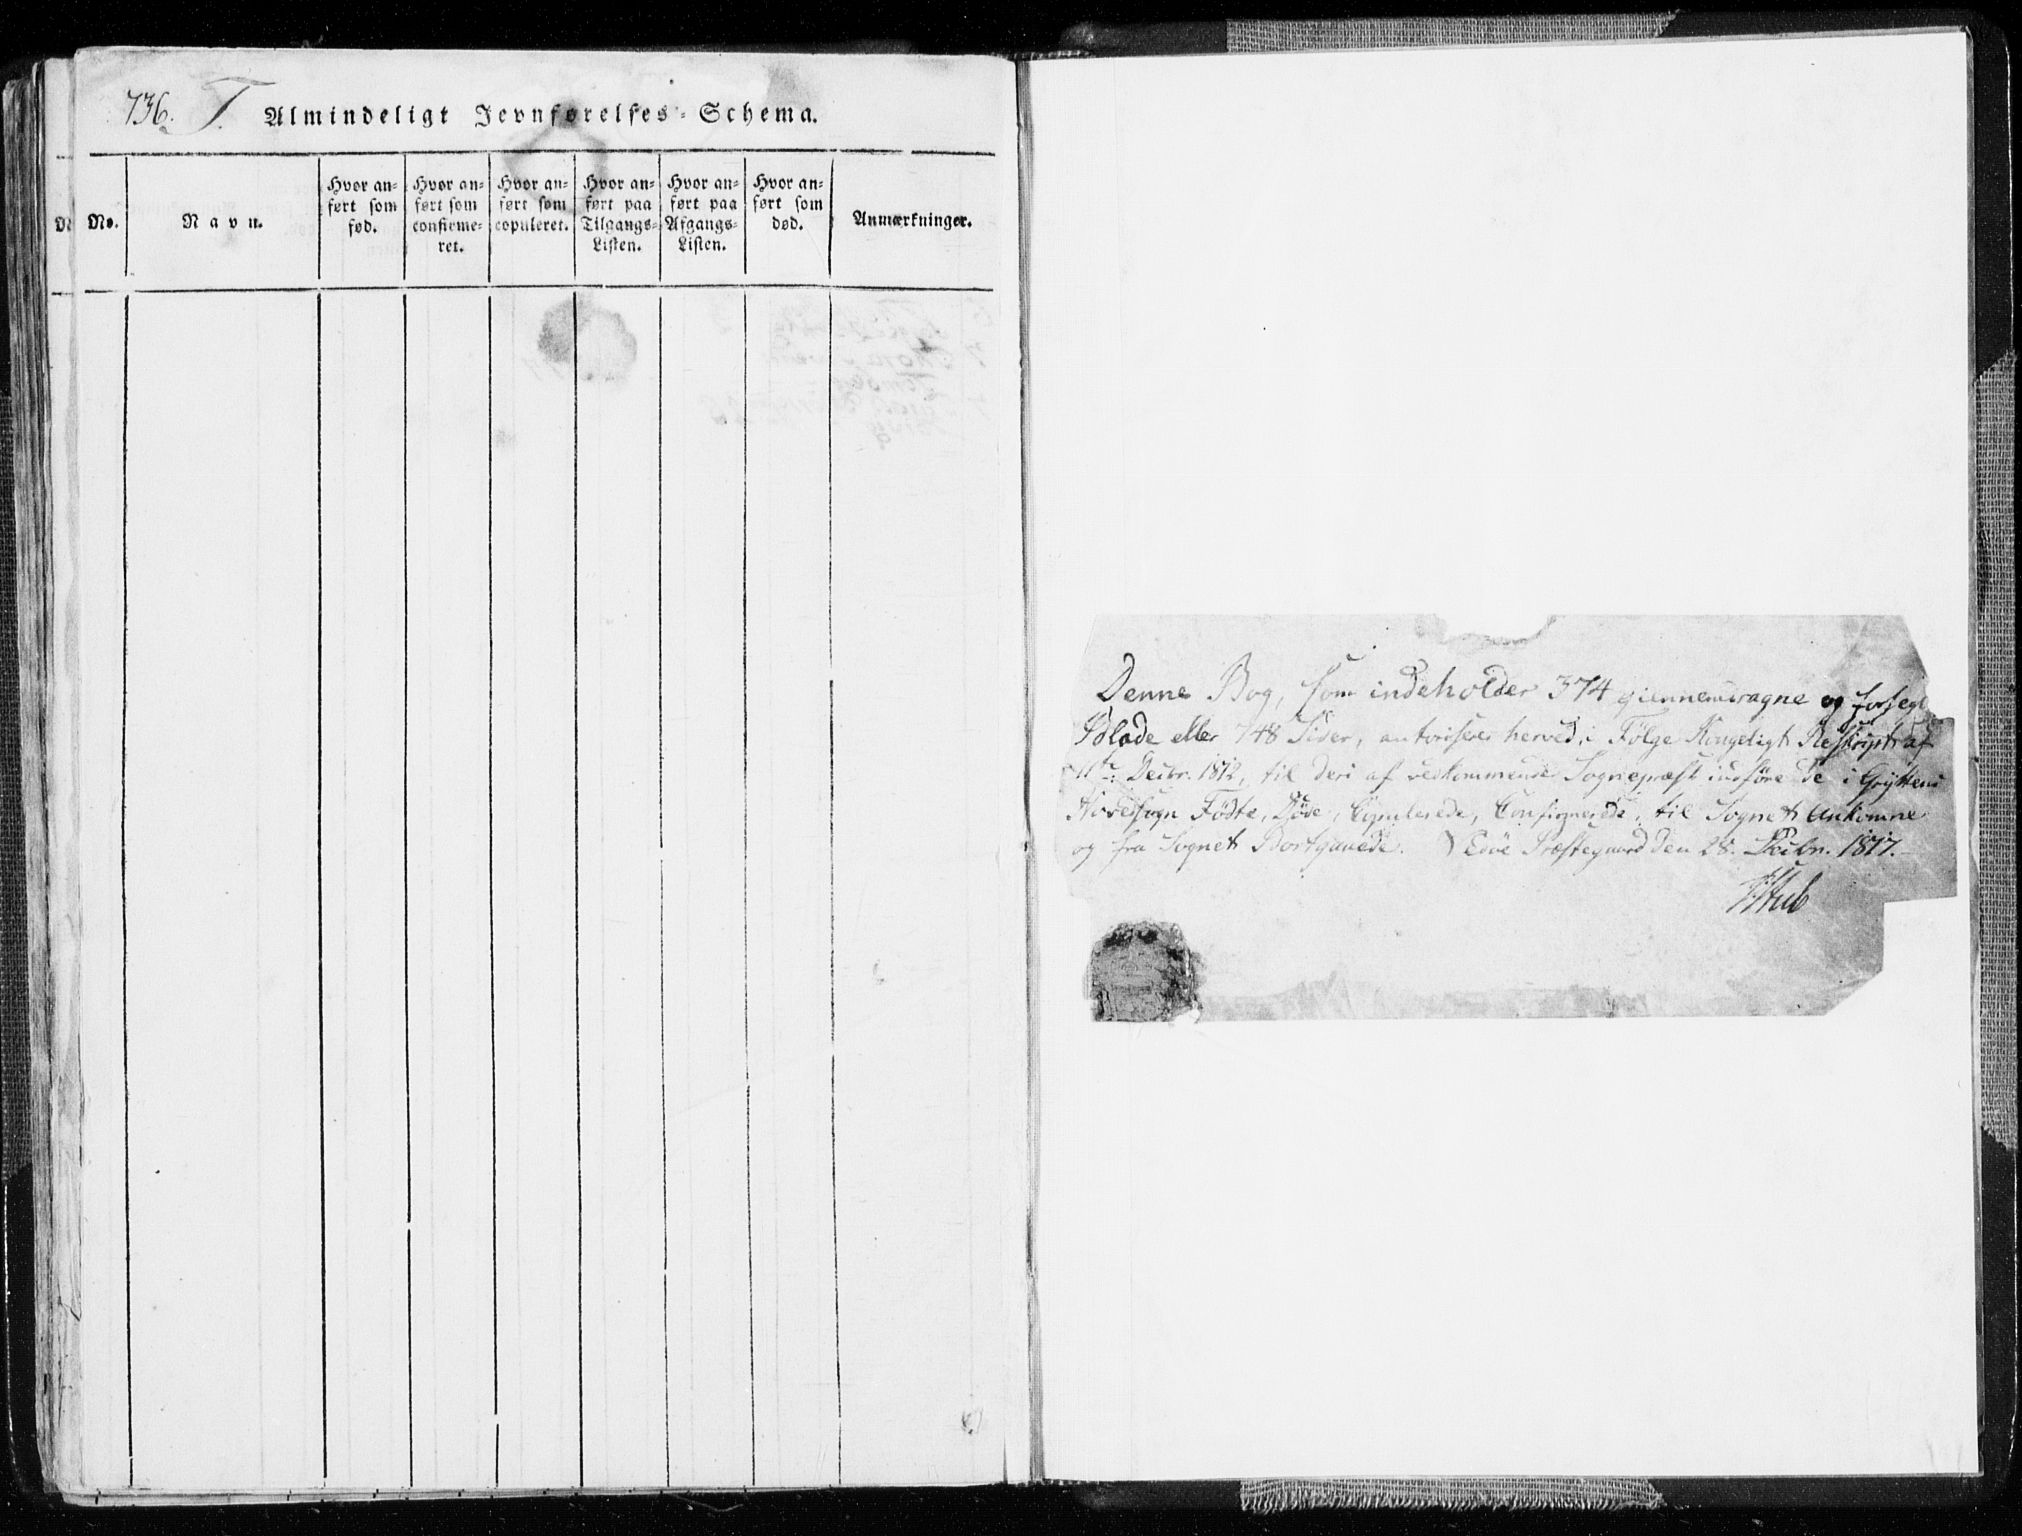 736. T. Almindeligt Jevnførelses-Schema.
No.
Navn.
Hvor an-
ført som
fød.
Hvor an-
ført som
confirme-
ret.
Hvor an-
ført som
copuleret.
Hvor an-
ført paa
Tilgangs-
Listen.
Hvor an-
ført paa
Afgangs-
Listen.
Hvor an-
ført som
død.
Anmærkninger.
Denne Bog, som indeholder 374 giennemdragne og forsegl
Blade eller 748 Sider, autoriseres herved, i Følge Kongeligt Reskript af
11te Decbr. 1812, til deri af vedkommende Sognepræst indføre de i Gryttens
Hovedsogn Fødte, Døde, Copulerede, Confirmerede, til Sognet Ankomne
og fra Sognet Bortgaaede. Edøe Præstegaard den 28. Decbr. 1817.
Stub